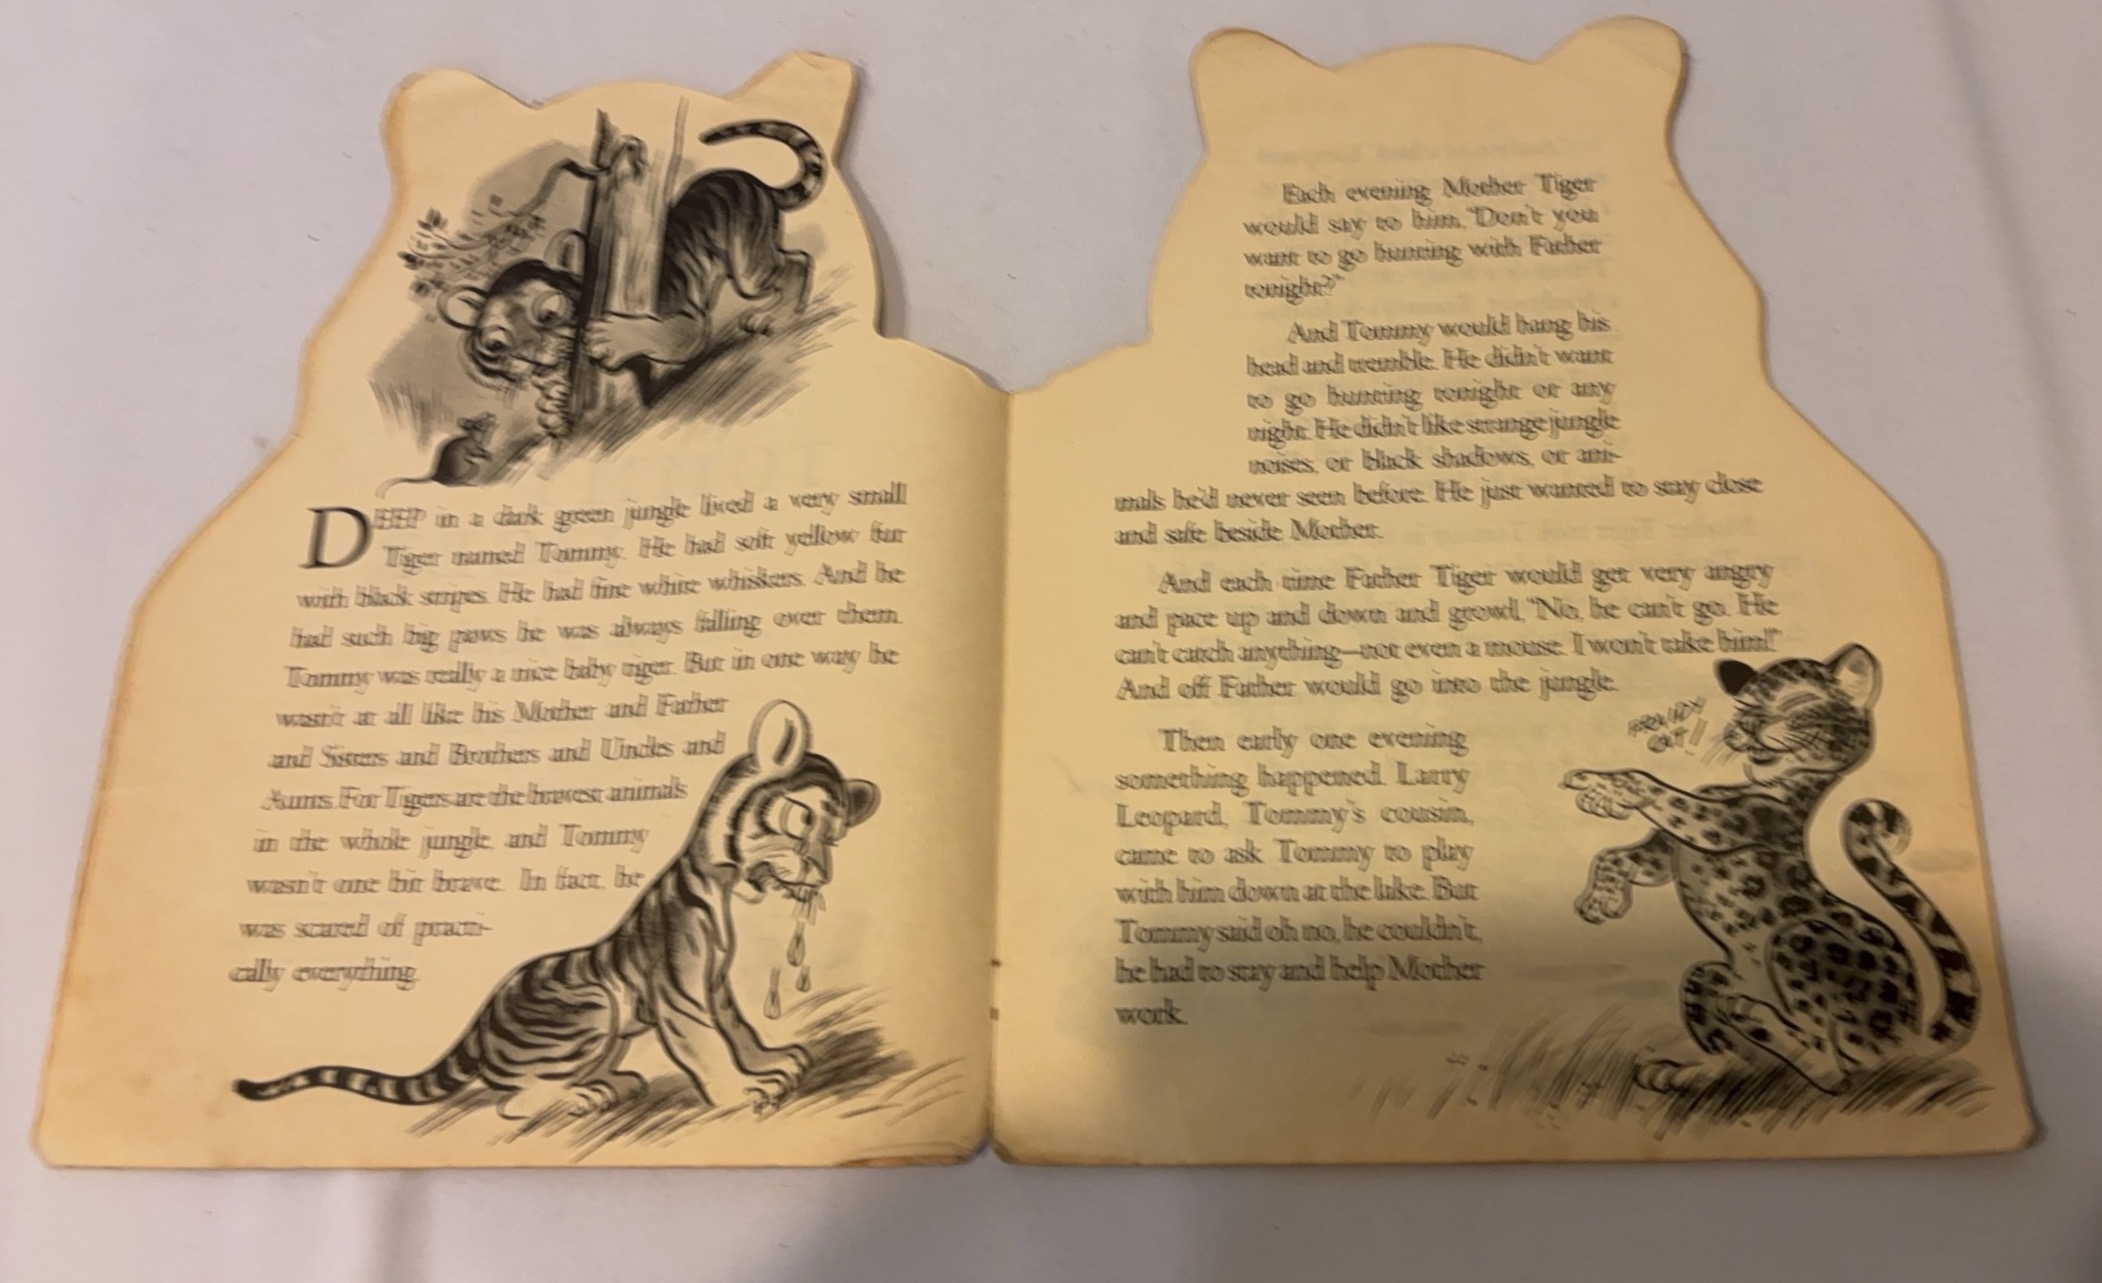 DEEP in a dark green jungle lived a very small
Tiger named Tommy. He had soft yellow fur
with black stripes. He had fine white whiskers. And he
had such big paws he was always falling over them.
Tommy was really a nice baby tiger. But in one way he
wasn't at all like his Mother and Father
and Sisters and Brothers and Uncles and
Aunts. For Tigers are the bravest animals
in the whole jungle, and Tommy
wasn't one bit brave. In fact, he
was scared of practi-
cally everything.
Each evening Mother Tiger
would say to him, "Don't you
want to go hunting with Father
tonight?"
And Tommy would hang his
head and tremble. He didn't want
to go hunting tonight or any
night. He didn't like strange jungle
noises, or black shadows, or ani-
mals he'd never seen before. He just wanted to stay close
and safe beside Mother.
And each time Father Tiger would get very angry
and pace up and down and growl, "No, he can't go. He
can't catch anything—not even a mouse. I won't take him!"
And off Father would go into the jungle.
FRAIDY
CAT!
Then early one evening
something happened. Larry
Leopard, Tommy's cousin,
came to ask Tommy to play
with him down at the lake. But
Tommy said oh no, he couldn't,
he had to stay and help Mother
work.